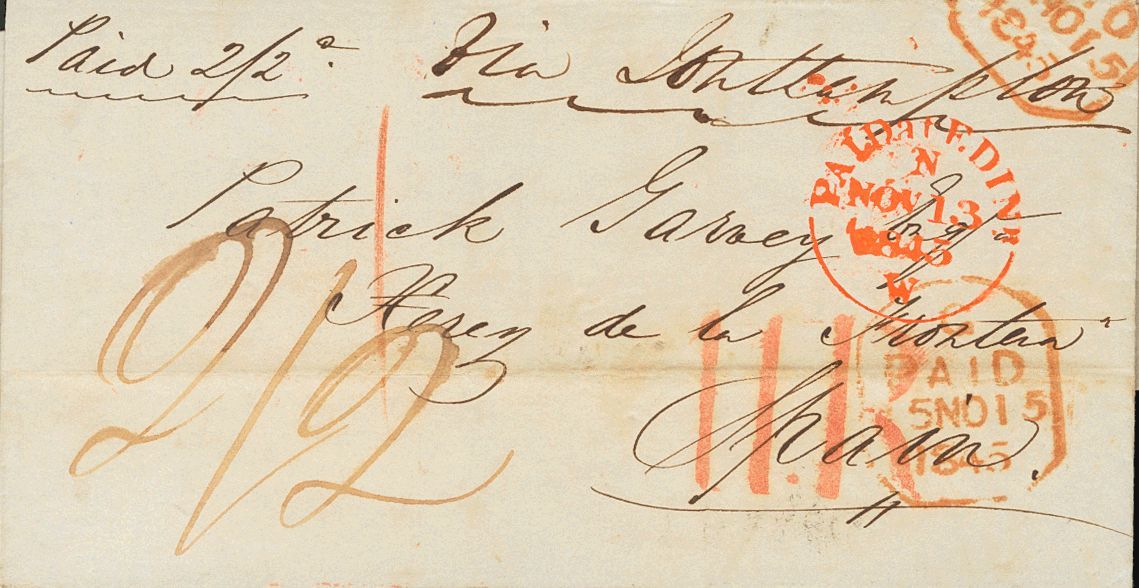 Paid 2/2d. Via Southampton
O
NO15
1845
PAID at EDINR
N
NOV 13
1845
W
Patrick Garvey Esqr
2/2
Xerez de la Frontera
Spain.
PAID
5NO15
1845